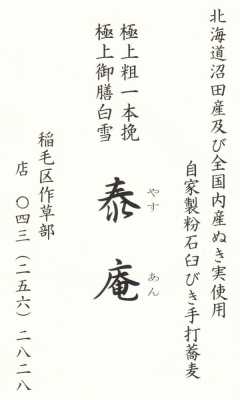 北海道沼田産及び全国内産ぬき実使用
自家製粉石臼びき手打蕎麦
極上粗一本挽
極上御膳白雪
泰庵
やす あん
稲毛区作草部
店 〇四三(二五六)二八二八